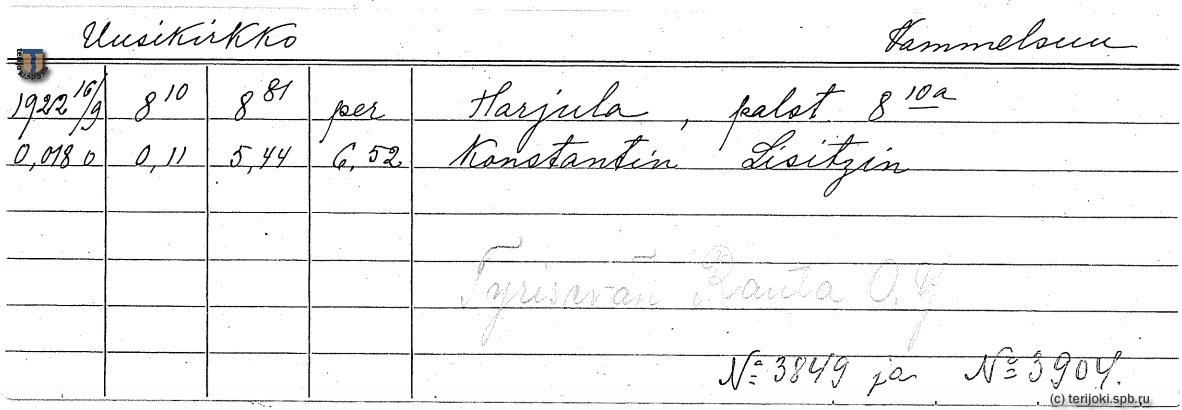 Uusikirkko Vammelsuu
1922 16/9 8 10 8 81 per Harjula, palst. 8 10a
0,018 0 0,11 5,44 6,52 Konstantin Lisitzin
Tyrisevän Ranta O.Y
№ 3849 ja № 3904.
(c) terijoki.spb.ru